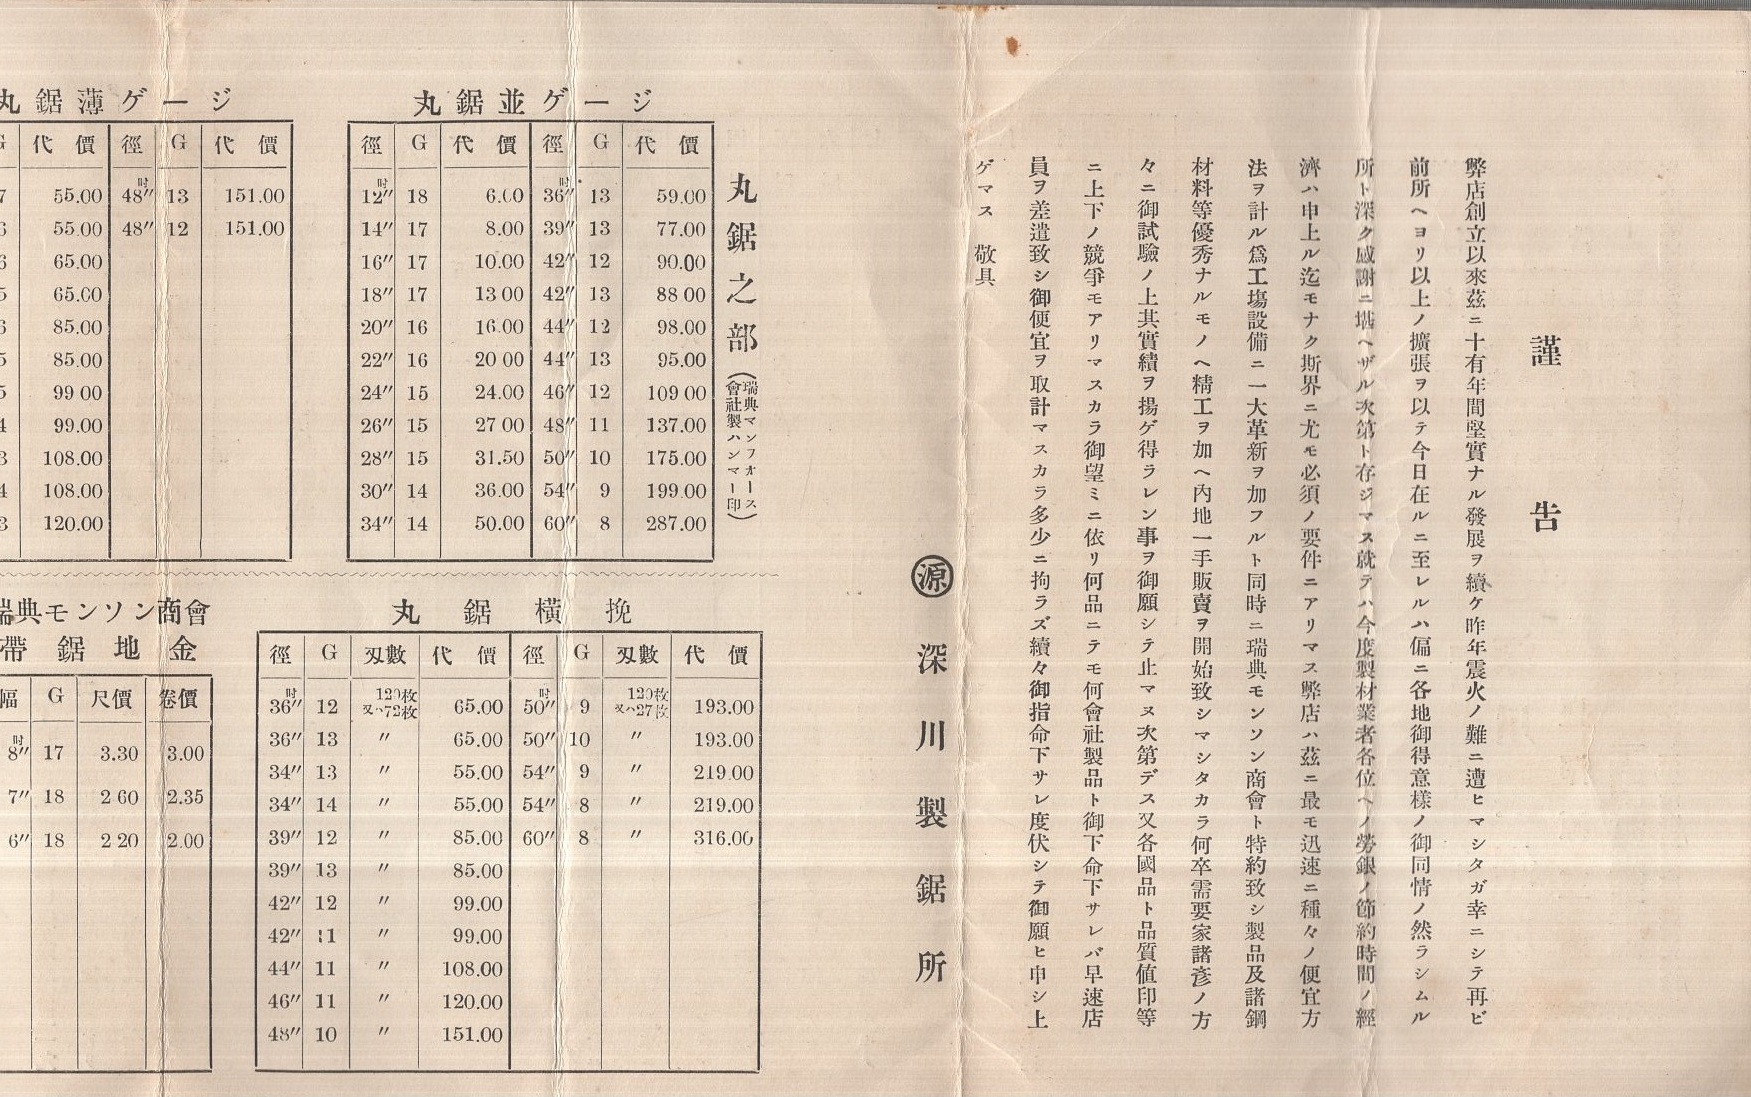 謹告
弊店創立以來茲ニ十有年間堅實ナル發展ヲ續ケ昨年震火ノ難ニ遭ヒマシタガ幸ニシテ再ビ
前所ヘヨリ以上ノ擴張ヲ以テ今日在ルニ至レルハ偏ニ各地御得意樣ノ御同情ノ然ラシムル
所ト深ク感謝ニ堪ヘザル次第ト存ジマス就テハ今度製材業者各位ヘノ勞銀ノ節約時間ノ經
濟ハ申上ル迄モナク斯界ニ尤モ必須ノ要件ニアリマス弊店ハ茲ニ最モ迅速ニ種々ノ便宜方
法ヲ計ル爲工塲設備ニ一大革新ヲ加フルト同時ニ瑞典モンソン商會ト特約致シ製品及諸鋼
材料等優秀ナルモノヘ精工ヲ加ヘ內地一手販賣ヲ開始致シマシタカラ何卒需要家諸彥ノ方
々ニ御試驗ノ上其實績ヲ揚ゲ得ラレン事ヲ御願シテ止マヌ次第デス又各國品ト品質値印等
ニ上下ノ競爭モアリマスカラ御望ミニ依リ何品ニテモ何會社製品ト御下命下サレバ早速店
員ヲ差遣致シ御便宜ヲ取計マスカラ多少ニ拘ラズ續々御指命下サレ度伏シテ御願ヒ申シ上
ゲマス 敬具
源 深川製鋸所
丸鋸之部(瑞典マンフオース會社製ハンマー印)
丸鋸並ゲージ
徑 G 代價 徑 G 代價
12吋″ 18 6.00 36吋″ 13 59.00
14″ 17 8.00 39″ 13 77.00
16″ 17 10.00 42″ 12 90.00
18″ 17 13 00 42″ 13 88 00
20″ 16 16.00 44″ 12 98.00
22″ 16 20 00 44″ 13 95.00
24″ 15 24.00 46″ 12 109 00
26″ 15 27 00 48″ 11 137.00
28″ 15 31.50 50″ 10 175.00
30″ 14 36.00 54″ 9 199.00
34″ 14 50.00 60″ 8 287.00
丸鋸薄ゲージ
G 代價 徑 G 代價
7 55.00 48吋″ 13 151.00
6 55.00 48″ 12 151.00
6 65.00
5 65.00
6 85.00
5 85.00
5 99 00
4 99.00
3 108.00
4 108.00
3 120.00
丸鋸橫挽
徑 G 刄數 代價 徑 G 刄數 代價
36吋″ 12 120枚又ハ72枚 65.00 50吋″ 9 120枚又ハ27枚 193.00
36″ 13 〃 65.00 50″ 10 〃 193.00
34″ 13 〃 55.00 54″ 9 〃 219.00
34″ 14 〃 55.00 54″ 8 〃 219.00
39″ 12 〃 85.00 60″ 8 〃 316.00
39″ 13 〃 85.00
42″ 12 〃 99.00
42″ 11 〃 99.00
44″ 11 〃 108.00
46″ 11 〃 120.00
48″ 10 〃 151.00
瑞典モンソン商會
帶鋸地金
幅 G 尺價 卷價
8吋″ 17 3.30 3.00
7″ 18 2 60 2.35
6″ 18 2 20 2.00